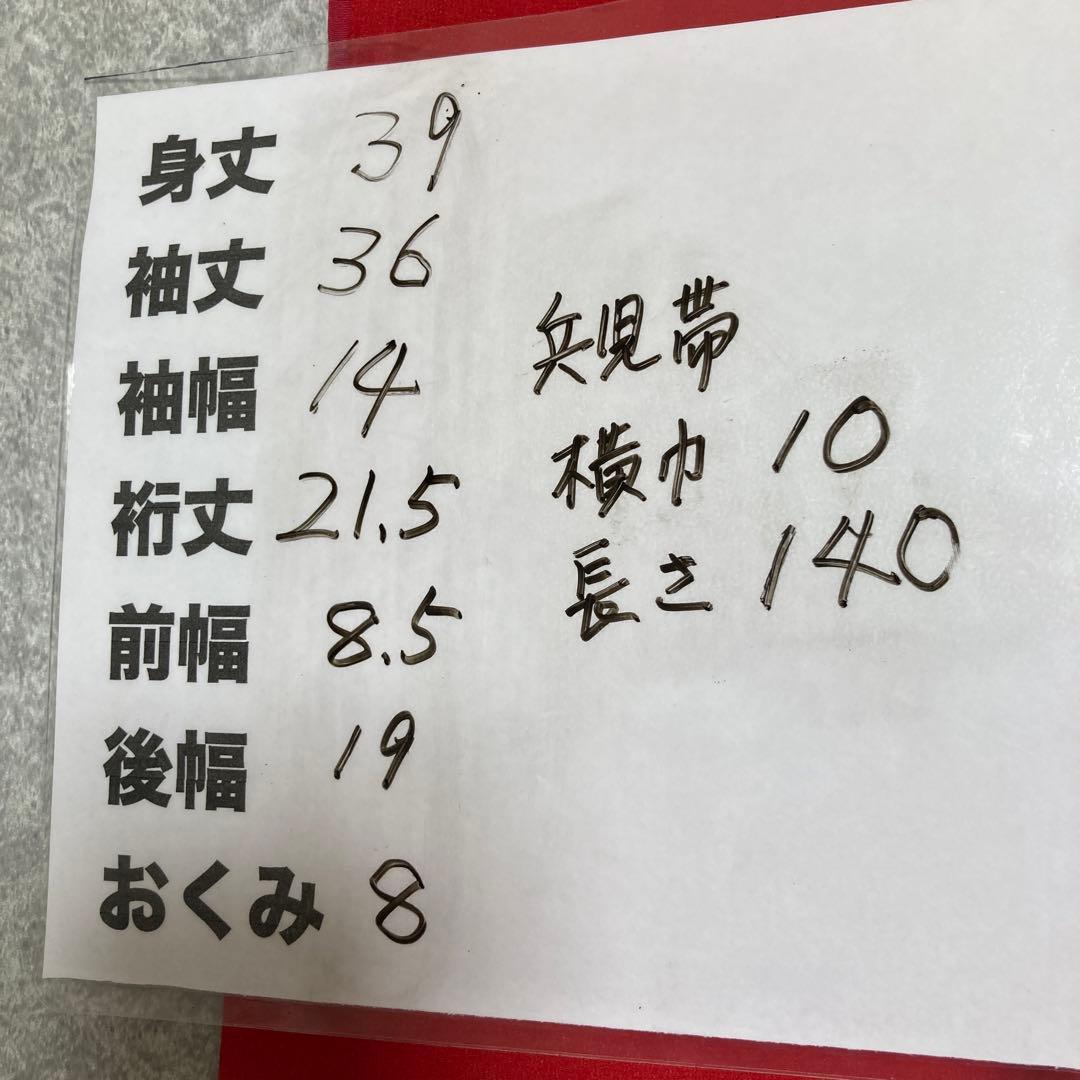 身丈 39
袖丈 36
袖幅 14
裄丈 21.5
前幅 8.5
後幅 19
おくみ 8
兵児帯
横巾 10
長さ 140